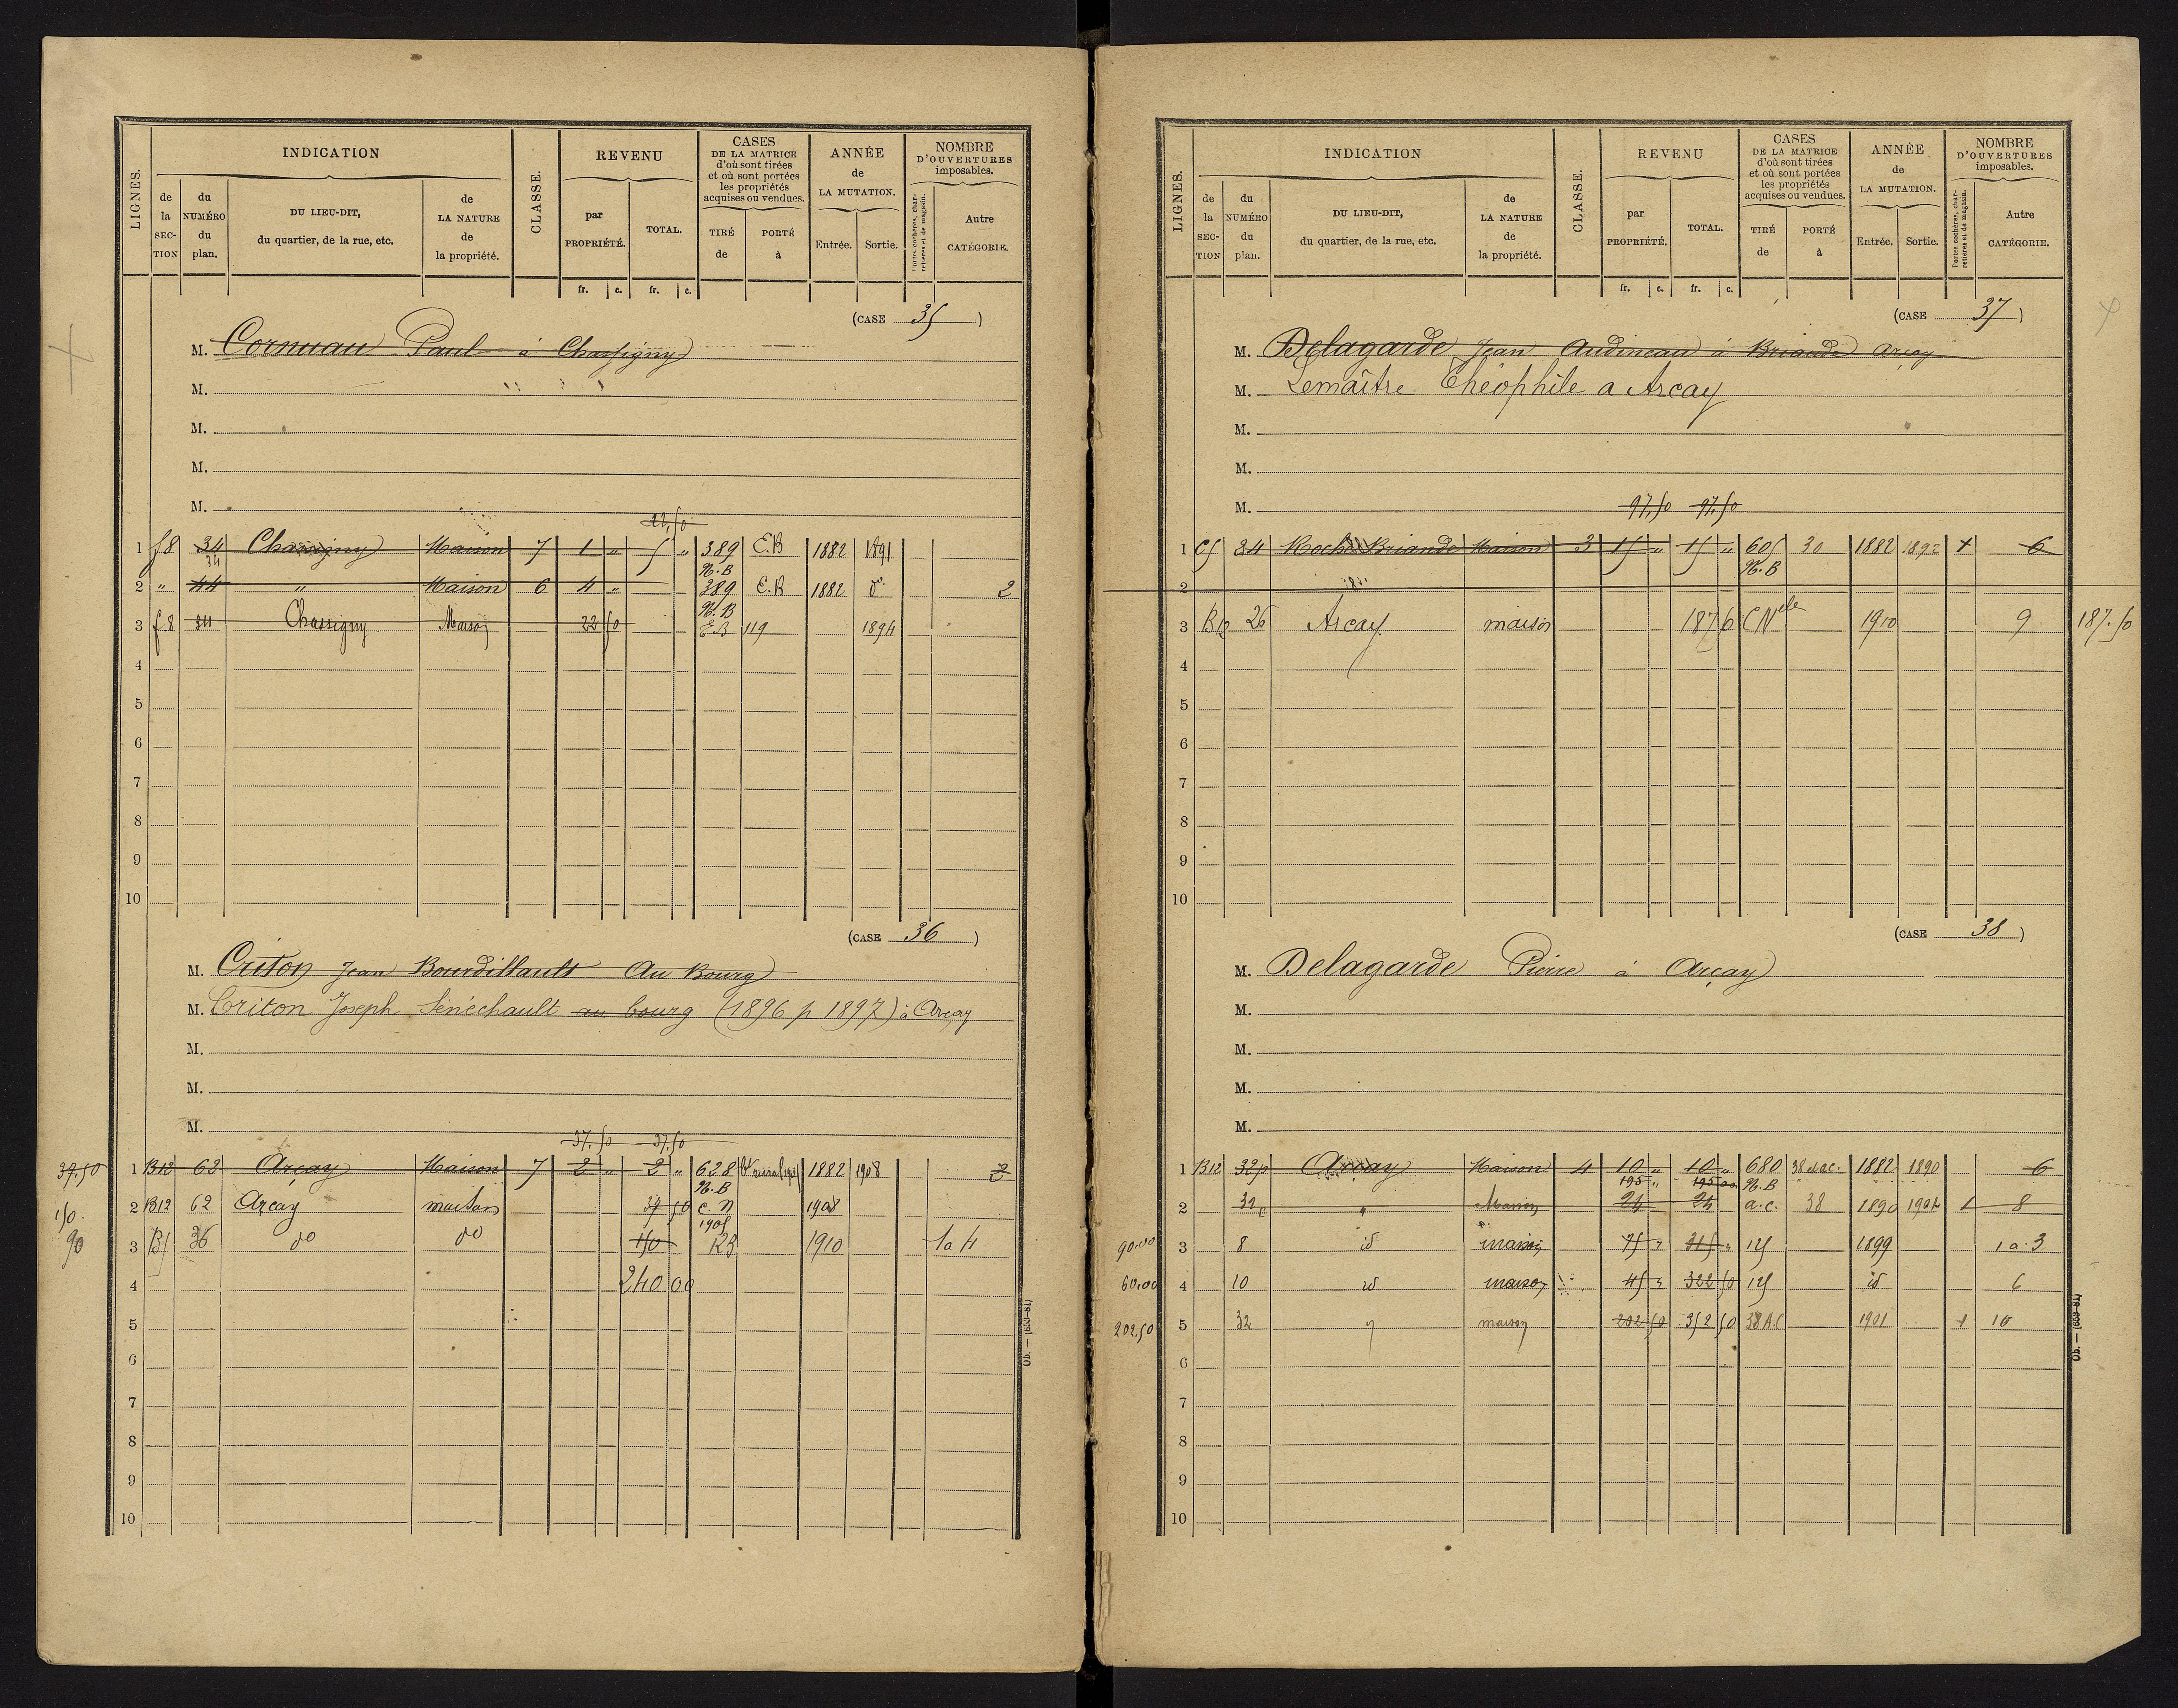 LIGNES. INDICATION CLASSE. REVENU CASES DE LA MATRICE d'où sont tirées et où sont portées les propriétés acquises ou vendues. ANNÉE de LA MUTATION. NOMBRE D'OUVERTURES imposables.
de la SECTION du NUMÉRO du plan. DU LIEU-DIT, du quartier, de la rue, etc. de LA NATURE de la propriété. par PROPRIÉTÉ. TOTAL. TIRÉ de PORTÉ à Entrée. Sortie. Portes cochères, charretières et de magasin. Autre CATÉGORIE.
fr. c. fr. c.
(CASE 35)
M. Cornuau Paul à Chassigny
M.
M.
M.
M.
22,50
1 f8 34 Chassigny Maison 7 1 " 5 " 389 E.B 1882 1891
34 N.B
2 " 44 " Maison 6 4 " 389 E.B 1882 d° 2
N.B
3 f.8 34 Chassigny Maison 22 50 E B 119 1894
4
5
6
7
8
9
10
(CASE 36)
M. Criton Jean Bourdillault Au Bourg
M. Criton Joseph Sénéchault au bourg (1896 p 1897) à Arcay
M.
M.
M.
37,50 37,50
37.50 1 B12 62 Arçay Maison 7 2 " 2 " 628 1882 1908 2
N.B
150. 2 B12 62 Arcay maison 37 50 C. N 1908
1908
90 3 B5 36 do do 150 RB 1910 1 a 4
4 240 00
5
6
7
8
9
10
Ob. — (653-81)
LIGNES. INDICATION CLASSE. REVENU CASES DE LA MATRICE d'où sont tirées et où sont portées les propriétés acquises ou vendues. ANNÉE de LA MUTATION. NOMBRE D'OUVERTURES imposables.
de la SECTION du NUMÉRO du plan. DU LIEU-DIT, du quartier, de la rue, etc. de LA NATURE de la propriété. par PROPRIÉTÉ. TOTAL. TIRÉ de PORTÉ à Entrée. Sortie. Portes cochères, charretières et de magasin. Autre CATÉGORIE.
fr. c. fr. c.
(CASE 37)
M. Delagarde Jean Audineau à Briande Arcay
M. Lemaître Théophile a Arcay
M.
M.
M. 97,50 97,50
1 C5 24 Roche Briande Maison 3 15 " 15 " 605 30 1882 1892 + 6
N.B
2
3 B12 26 Arcay maison 187 6 CNlle 1910 9 187.50
4
5
6
7
8
9
10
(CASE 38)
M. Delagarde Pierre à Arçay
M.
M.
M.
M.
1 B12 32p Arcay Maison 4 10 " 10 " 680 38 et a.c. 1882 1890 6
195 " 195 00 N.B
2 32p " Maison 24 24 a.c. 38 1890 1901 1 8
90.00 3 8 id maison 75 " 315 " 125 1899 1 a 3
60,00 4 10 id maison 45 " 322 50 125 id 6
202,50 5 32 " maison 202 50 352 50 38 A.C 1901 1 10
6
7
8
9
10
Ob. — (653-81)